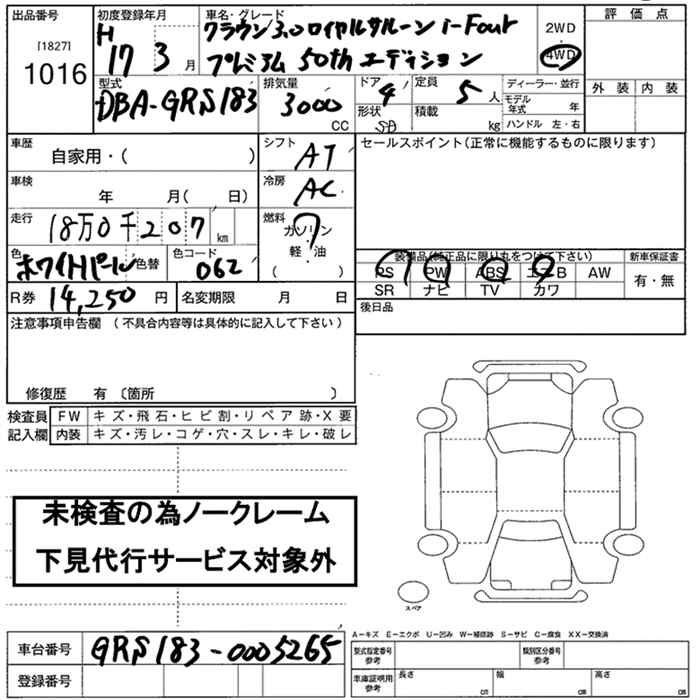 出品番号 初度登録年月 車名・グレード 評価点
[1827] H クラウン3.0ロイヤルサルーン i-Four 2WD
1016 17 3 月 プレミアム 50th エディション ・4WD
型式 排気量 ドア 定員 ディーラー・並行 外装 内装
DBA-GRS183 3000 CC 4 5 人 モデル年式 年
形状 SD 積載 kg ハンドル 左・右
車歴 シフト セールスポイント(正常に機能するものに限ります)
自家用・( ) AT
車検 冷房
年 月( 日) AC
走行 燃料
18万0千207 km ガソリン
軽・油
色 色コード ( )
ホワイトパール 色替 062
装備品(純正品に限り丸をつけて下さい) 新車保証書
PS PW ABS エアB AW 有・無
SR ナビ TV カワ
R券 14,250 円 名変期限 月 日 後日品
注意事項申告欄(不具合内容等は具体的に記入して下さい)
修復歴 有〔箇所 〕
検査員 FW キズ・飛石・ヒビ割・リペア跡・X要
記入欄 内装 キズ・汚レ・コゲ・穴・スレ・キレ・破レ
未検査の為ノークレーム
下見代行サービス対象外
スペア
A-キズ E-エクボ U-凹み W-補修跡 S-サビ C-腐食 XX-交換済
車台番号 GRS183-0005265 型式指定番号 参考 類別区分番号 参考
登録番号 車庫証明用 参考 長さ cm 幅 cm 高さ cm